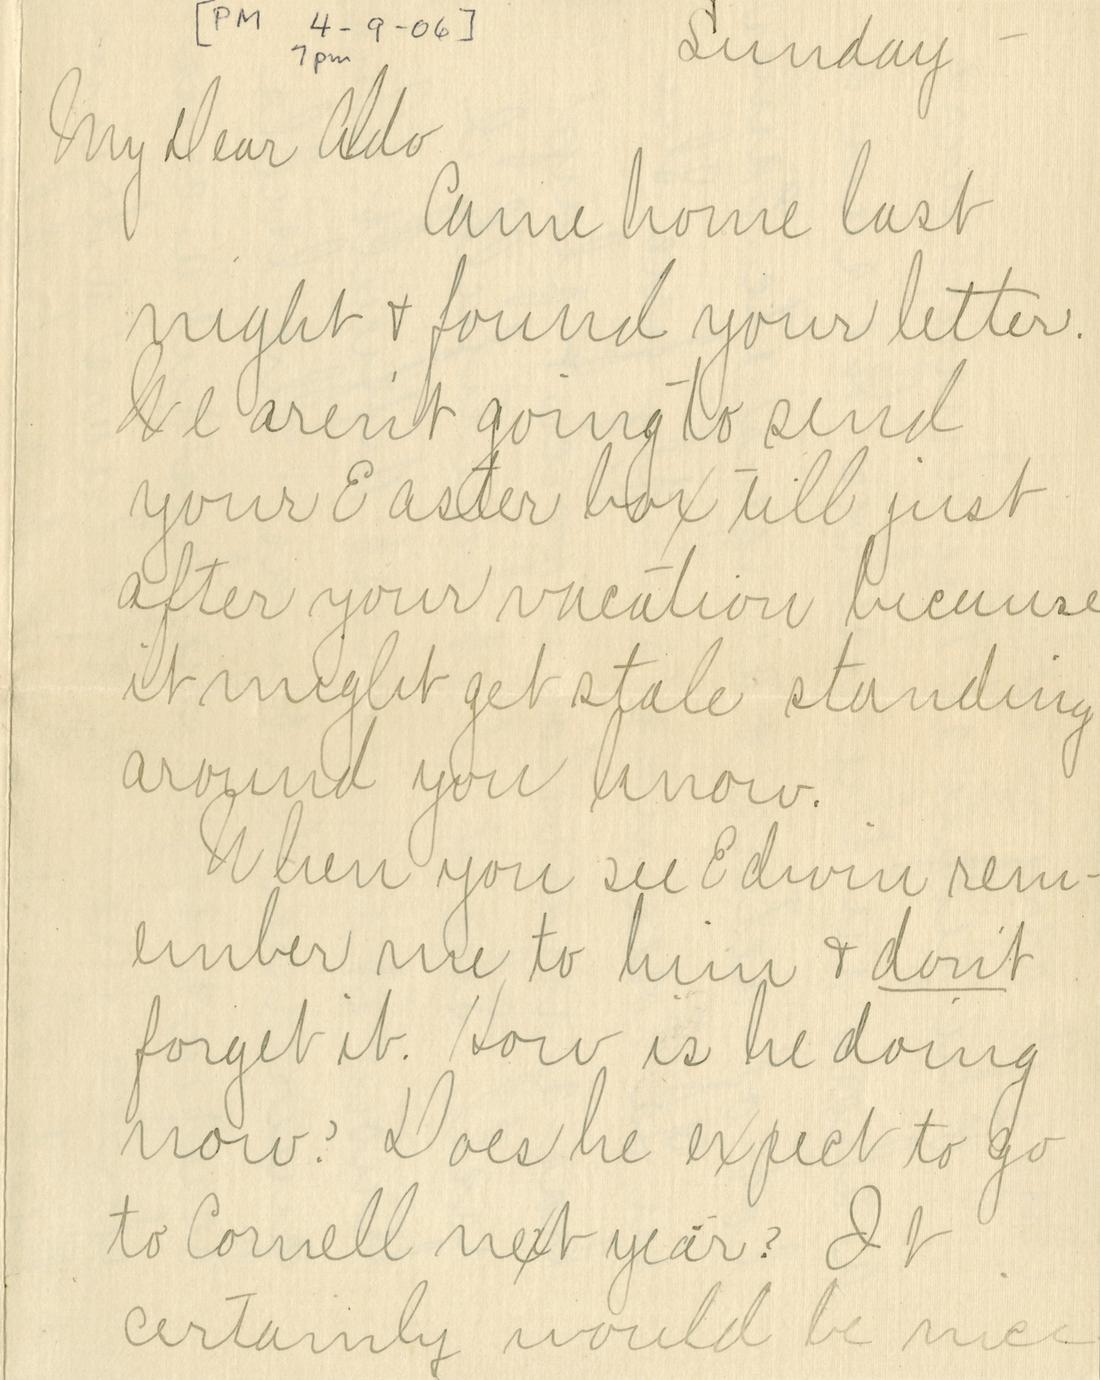 [PM 4-9-06]
7pm
Sunday –
My Dear Aldo
Came home last
night & found your letter.
We aren't going to send
your Easter box till just
after your vacation because
it might get stale standing
around you know.
When you see Edwin rem-
ember me to him & don't
forget it. How is he doing
now? Does he expect to go
to Cornell next year? It
certainly would be nice